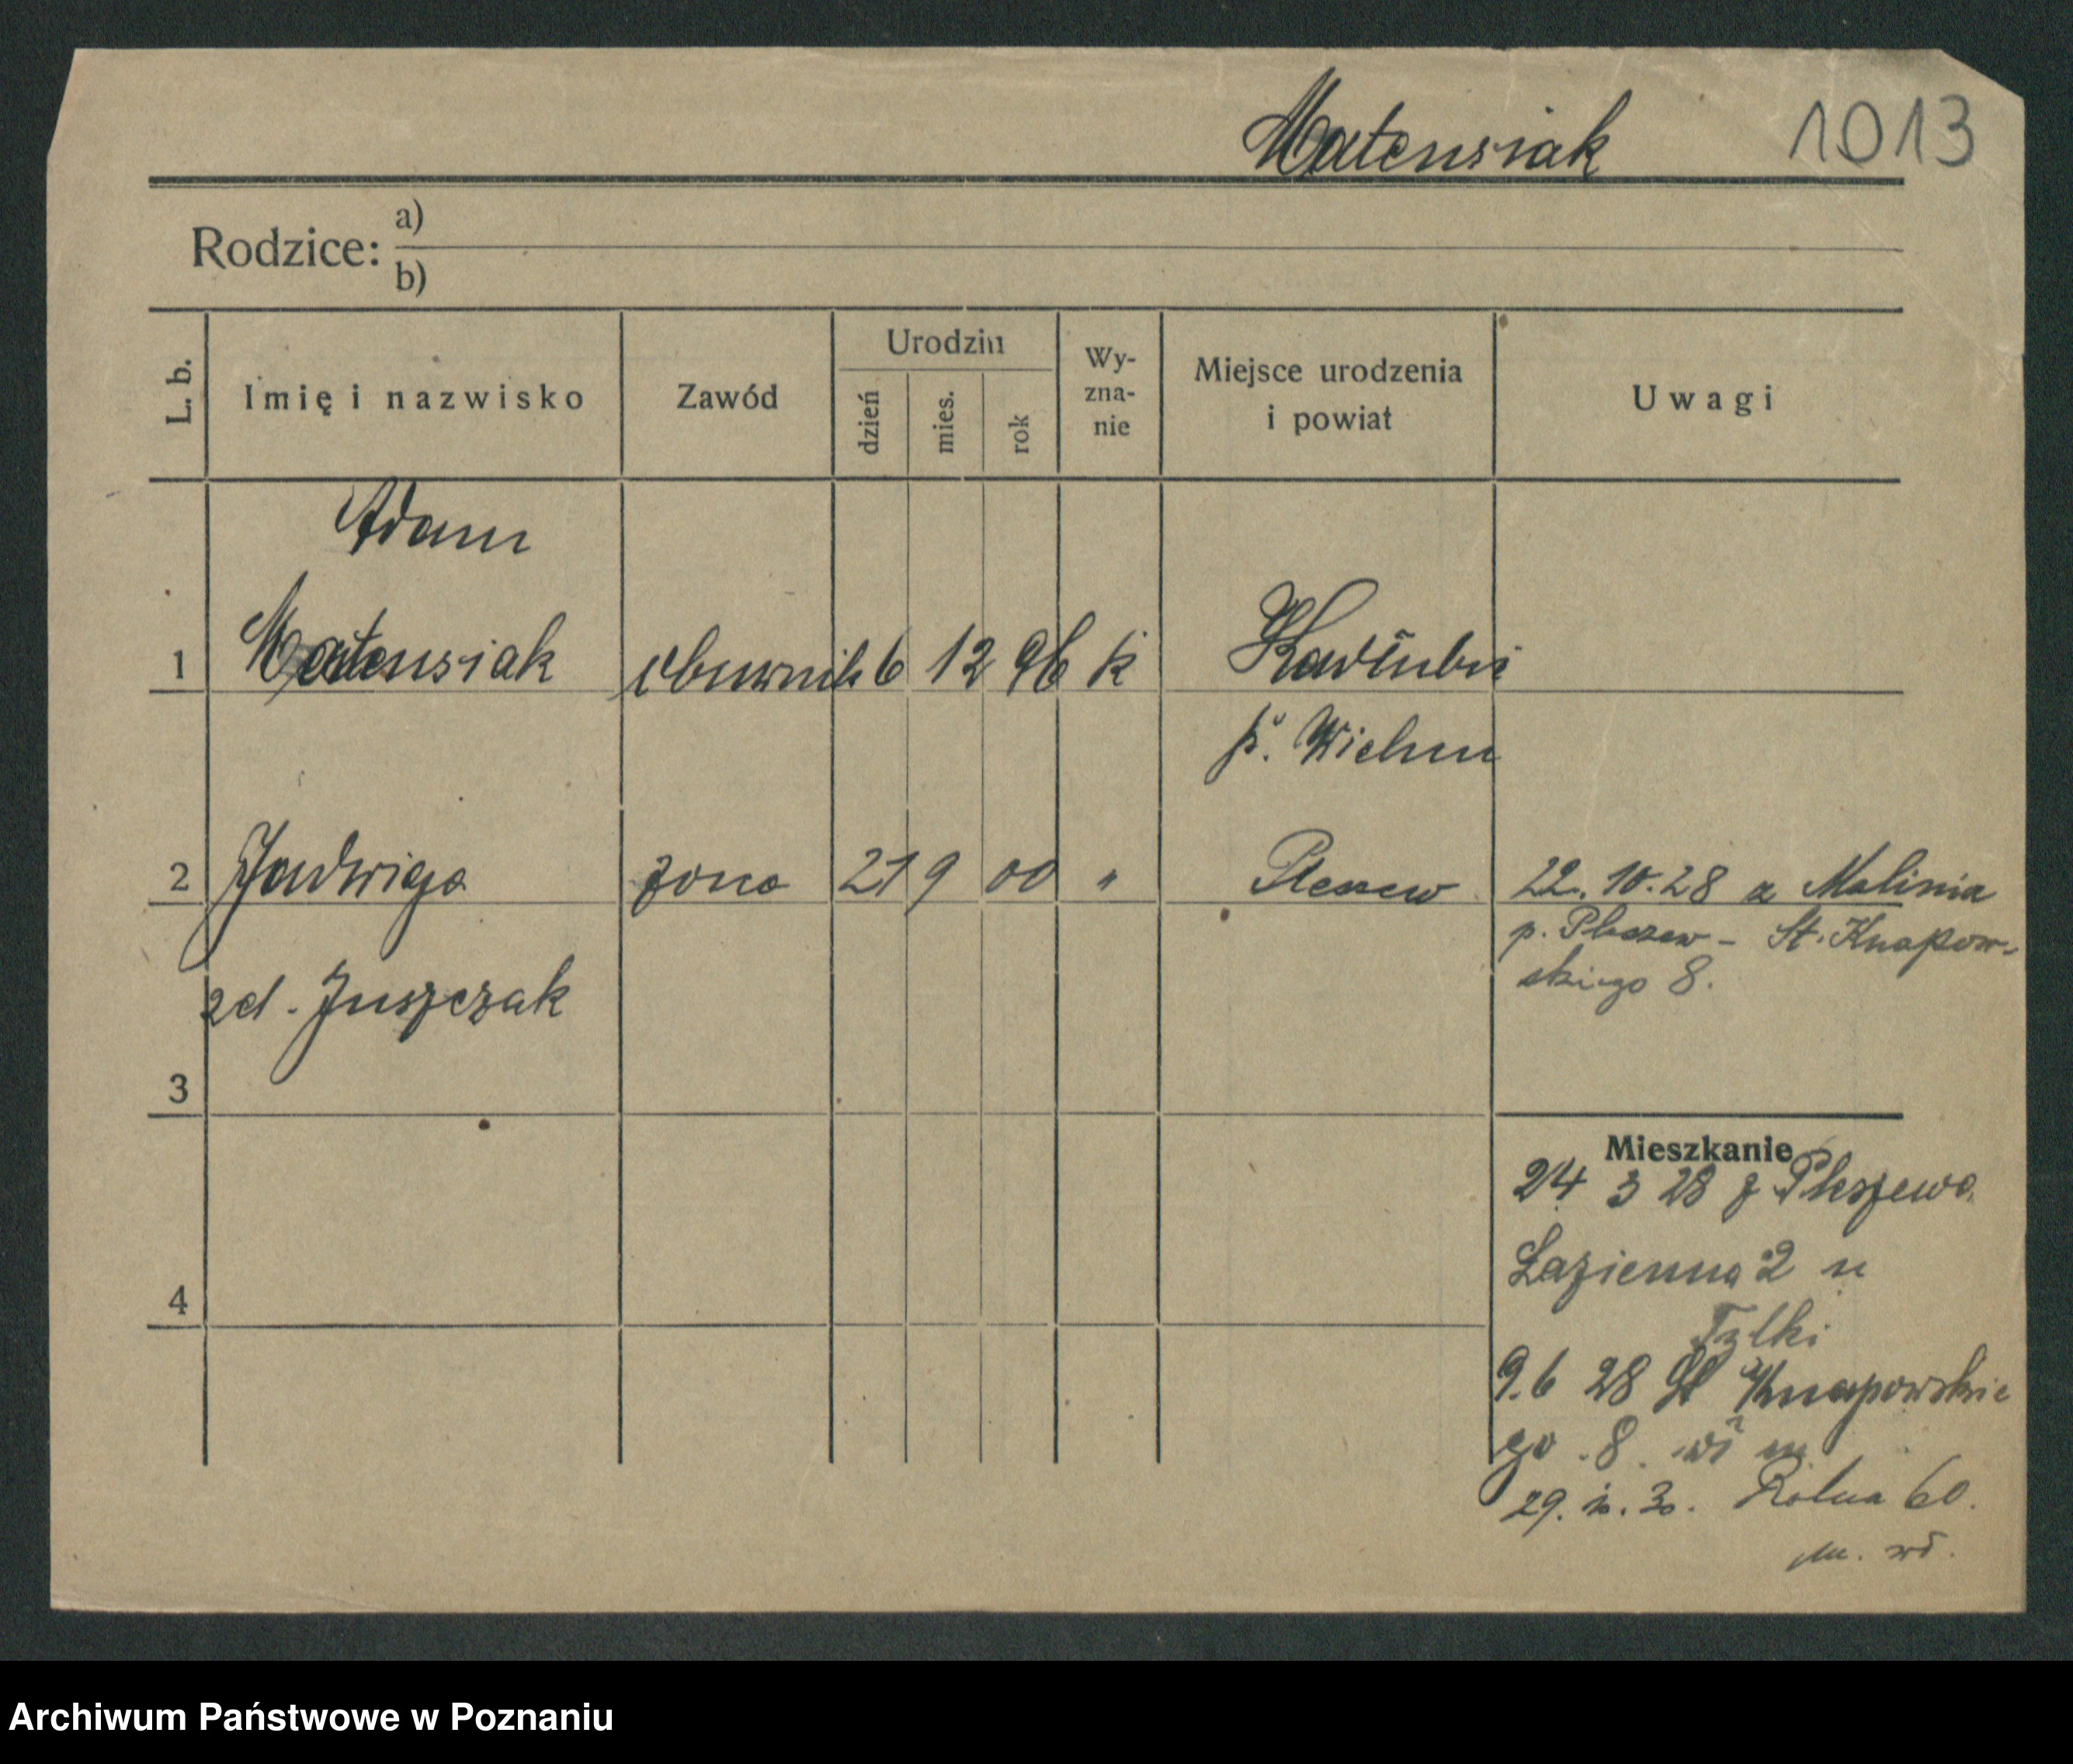 Mateusiak 1013
Rodzice: a)
b)
L. b. Imię i nazwisko Zawód Urodzin dzień mies. rok Wy-zna-nie Miejsce urodzenia i powiat Uwagi
Adam
1 Mateusiak obuwnik 6 12 96 k Kadłubi
p. Wielun
2 Jadwiga zona 21 9 00 " Pleszew 22. 10. 28 z Malinia
p. Pleszew - St. Knapow-
skiego 8.
zd. Juszczak
3
Mieszkanie
24 3 28 z Pleszewa
Łazienna 2 u
4
Tylki
9.6 28 St Knapowskie
go 8. wł m
29. 10. 30. Rolna 60.
m. wł.
Archiwum Państwowe w Poznaniu